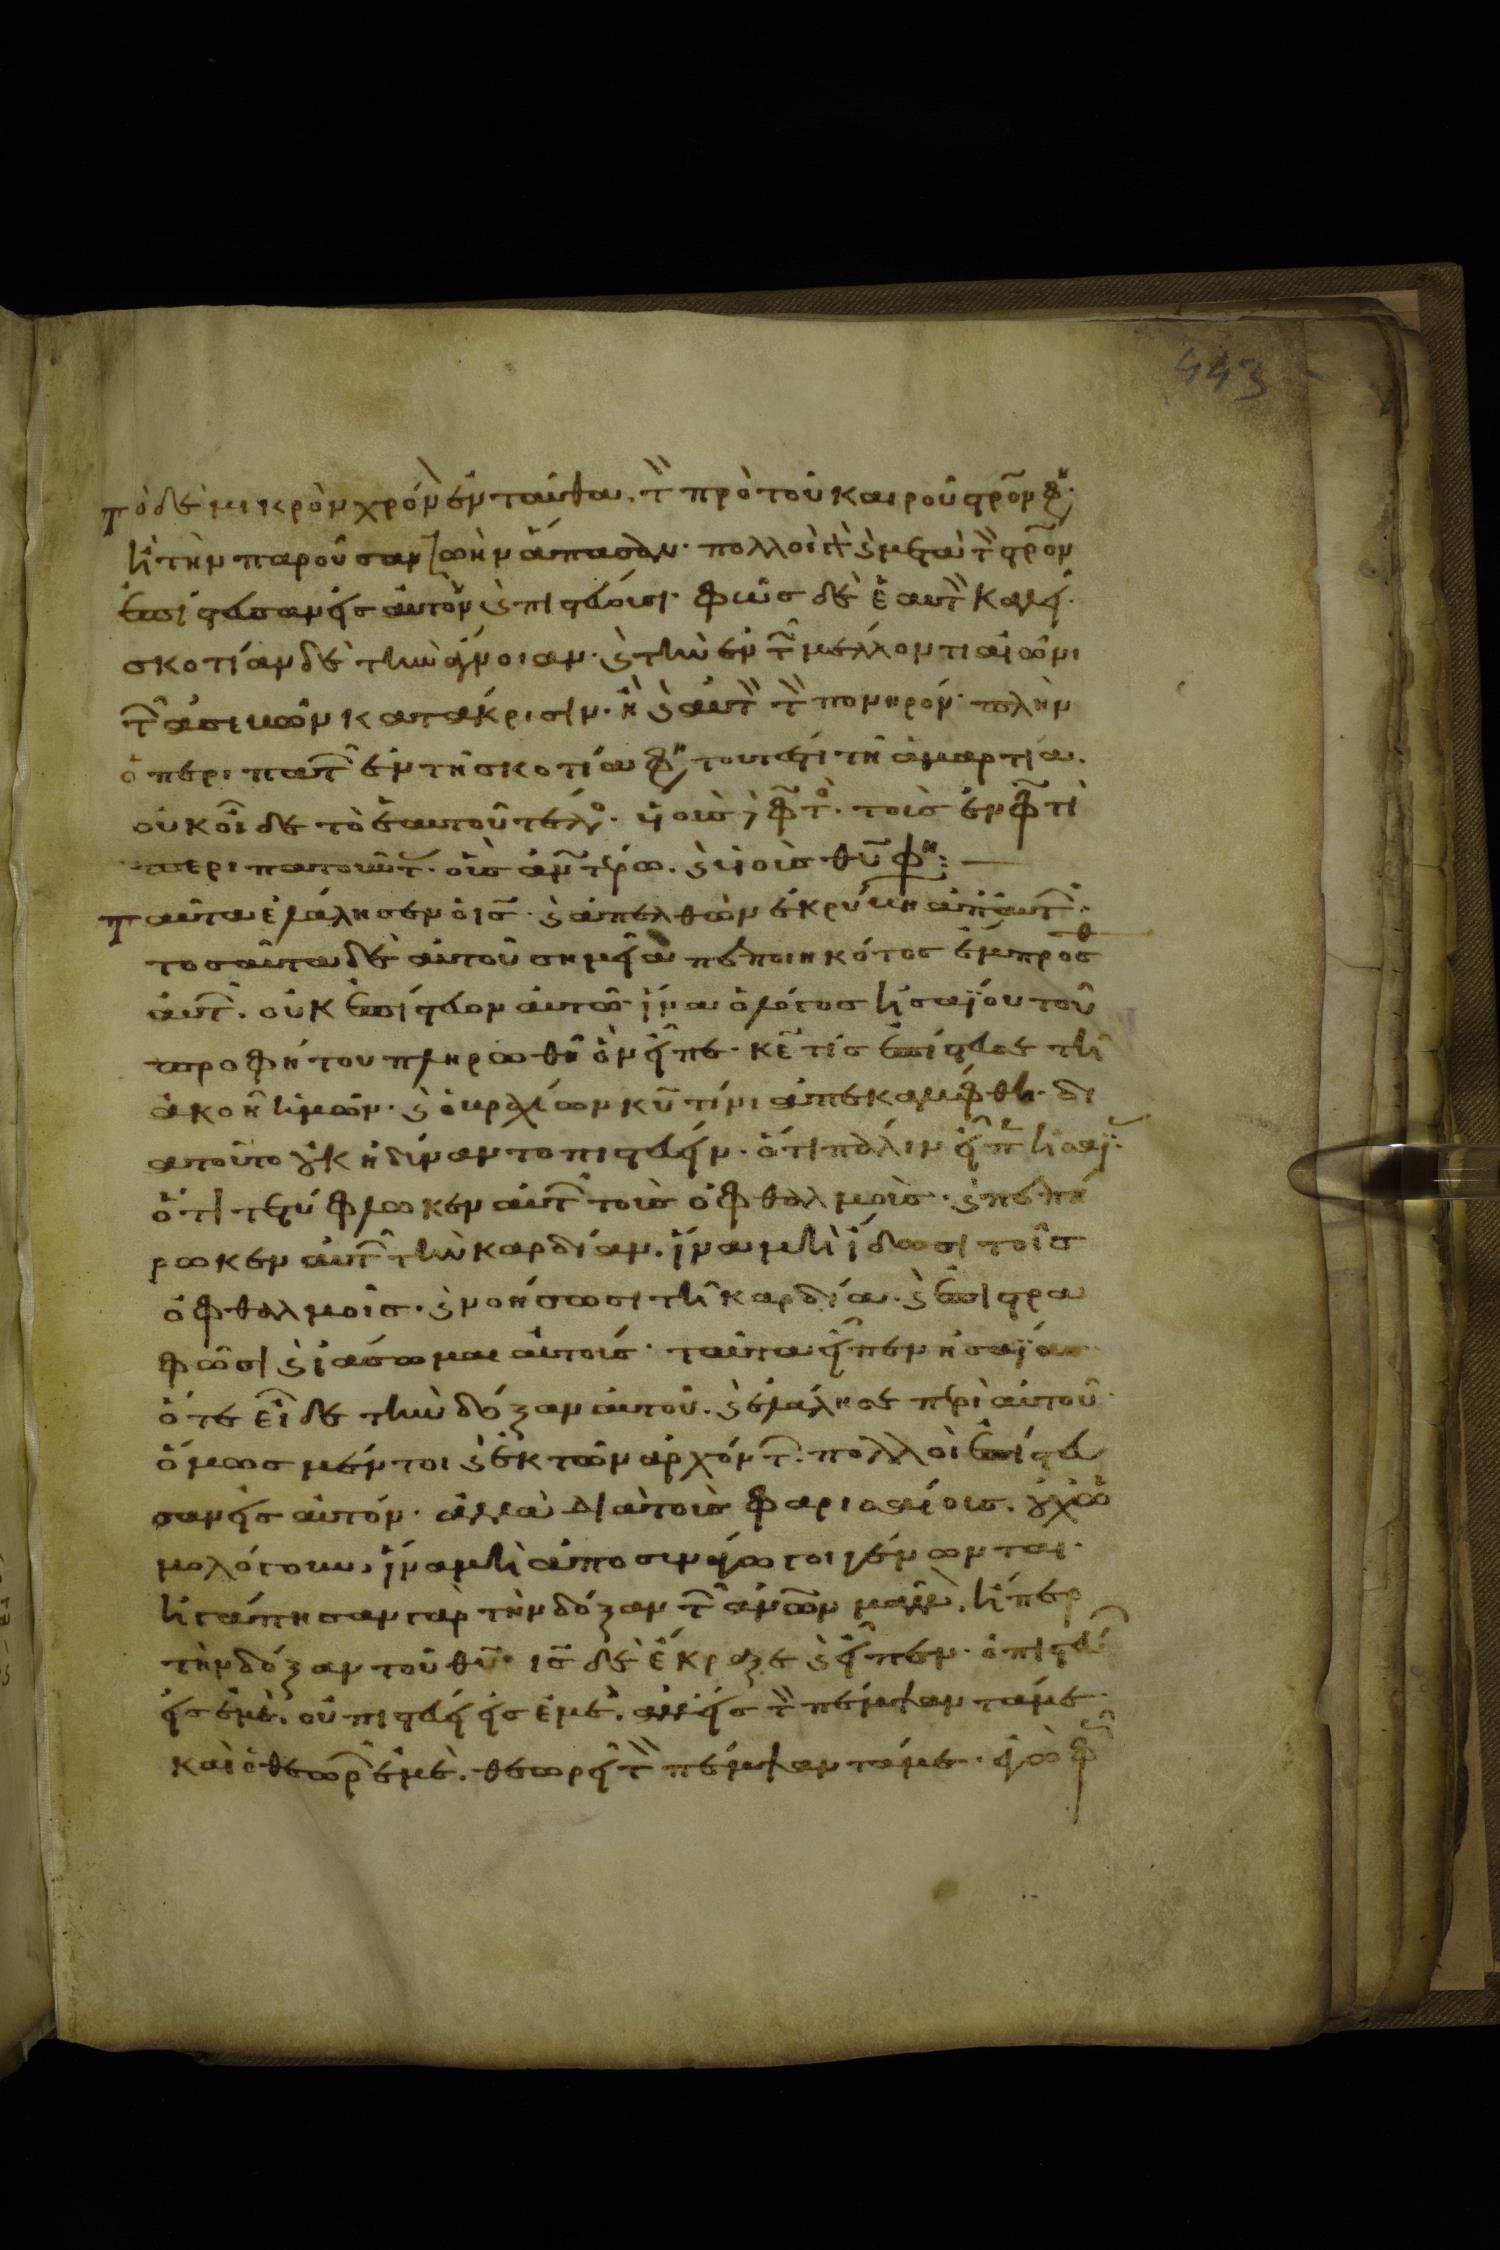 443
Τὸ δὲ μικρὸν χρόν ἐνταῦθα. τ̀ πρὸ τοῦ καιροῦ στρον φη·
ἢ τὴν παροῦσαν ζωὴν ἅπασαν· πολλοὶ γὰρ καὶ μετὰ τ̀ στρον
ἐπίστευσαν εἰς αὐτὸν καὶ πιστεύουσι· φῶς δὲ ἑαυτ̀ καλεῖ·
σκοτίαν δὲ τὴν ἄνοιαν· καὶ τὴν ἐν τῶ μέλλοντι αἰῶνι
τῶν ἀσεβῶν κατάκρισιν· ἢ καὶ αὐτ̀ τ̀ πονηρόν· πλὴν
ὁ περιπατῶν ἐν τῆ σκοτία φη, τουτέστι τῆ ἁμαρτία.
οὐκ οἶδε τὸ ἑαυτοῦ τέλος· υἱοὺς φωτὸς τοὺς ἐν φωτὶ
περιπατοῦντας· οὓς ἀνωτέρω. καὶ υἱοὺς θυ φη:
Ταῦτα ἐλάλησεν ὁ ις· καὶ ἀπελθὼν ἐκρύβη ἀπ αὐτῶν·
τοσαῦτα δὲ αὐτοῦ σημεῖα πεποιηκότος ἔμπροσθ
αὐτῶν. οὐκ ἐπίστευον αὐτῶ· ἵνα ὁ λόγος ἠσαΐου τοῦ
προφήτου πληρωθῆ ὃν εἶπε· κε τίς ἐπίστευσε τῆ
ἀκοῆ ἡμῶν· καὶ ὁ βραχίων κυ τίνι ἀπεκαλύφθη· δι
ατοῦτο οὐκ ἠδύναντο πιστεύειν· ὅτι πάλιν εἶπεν ἠσαΐας·
ὅτι τετύφλωκεν αὐτῶν τοὺς ὀφθαλμούς· καὶ πεπή
ρωκεν αὐτῶν τὴν καρδίαν. ἵνα μὴ ἴδωσι τοῖς
ὀφθαλμοῖς· καὶ νοήσωσι τῆ καρδία· καὶ ἐπιστρα
φῶσι καὶ ἰάσωμαι αὐτούς· ταῦτα εἶπεν ἠσαΐας
ὅτε εἶδε τὴν δόξαν αὐτοῦ. καὶ ἐλάλησε περὶ αὐτοῦ·
ὅμως μέντοι καὶ ἐκ τῶν ἀρχόντων πολλοὶ ἐπίστευ
σαν εἰς αὐτόν· ἀλλὰ διὰ τοὺς φαρισαίους. οὐχ ὡ
μολόγουν, ἵνα μὴ ἀποσυνάγωγοι γένωνται·
ἠγάπησαν γὰρ τὴν δόξαν τῶν ανων μᾶλλον, ἤπερ
τὴν δόξαν τοῦ θυ· ις δὲ ἔκραξε καὶ εἶπεν· ὁ πιστεύων
εἰς ἐμὲ. οὐ πιστεύει εἰς ἐμέ. ἀλλ εἰς τ̀ πέμψαντά με·
καὶ ὁ θεωρῶν ἐμὲ. θεωρεῖ τ̀ πέμψαντά με· ἐγὼ φῶς